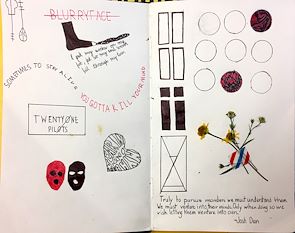 BLURRYFACE
SOMETIMES TO STAY ALIVE
YOU GOTTA K ILL YOUR MIND
TWENTY ØNE
PILØTS
Truly to pursue monsters we must understand them.
We must venture into their minds. Only when doing so we
risk letting them venture into ours?
-Josh Dun